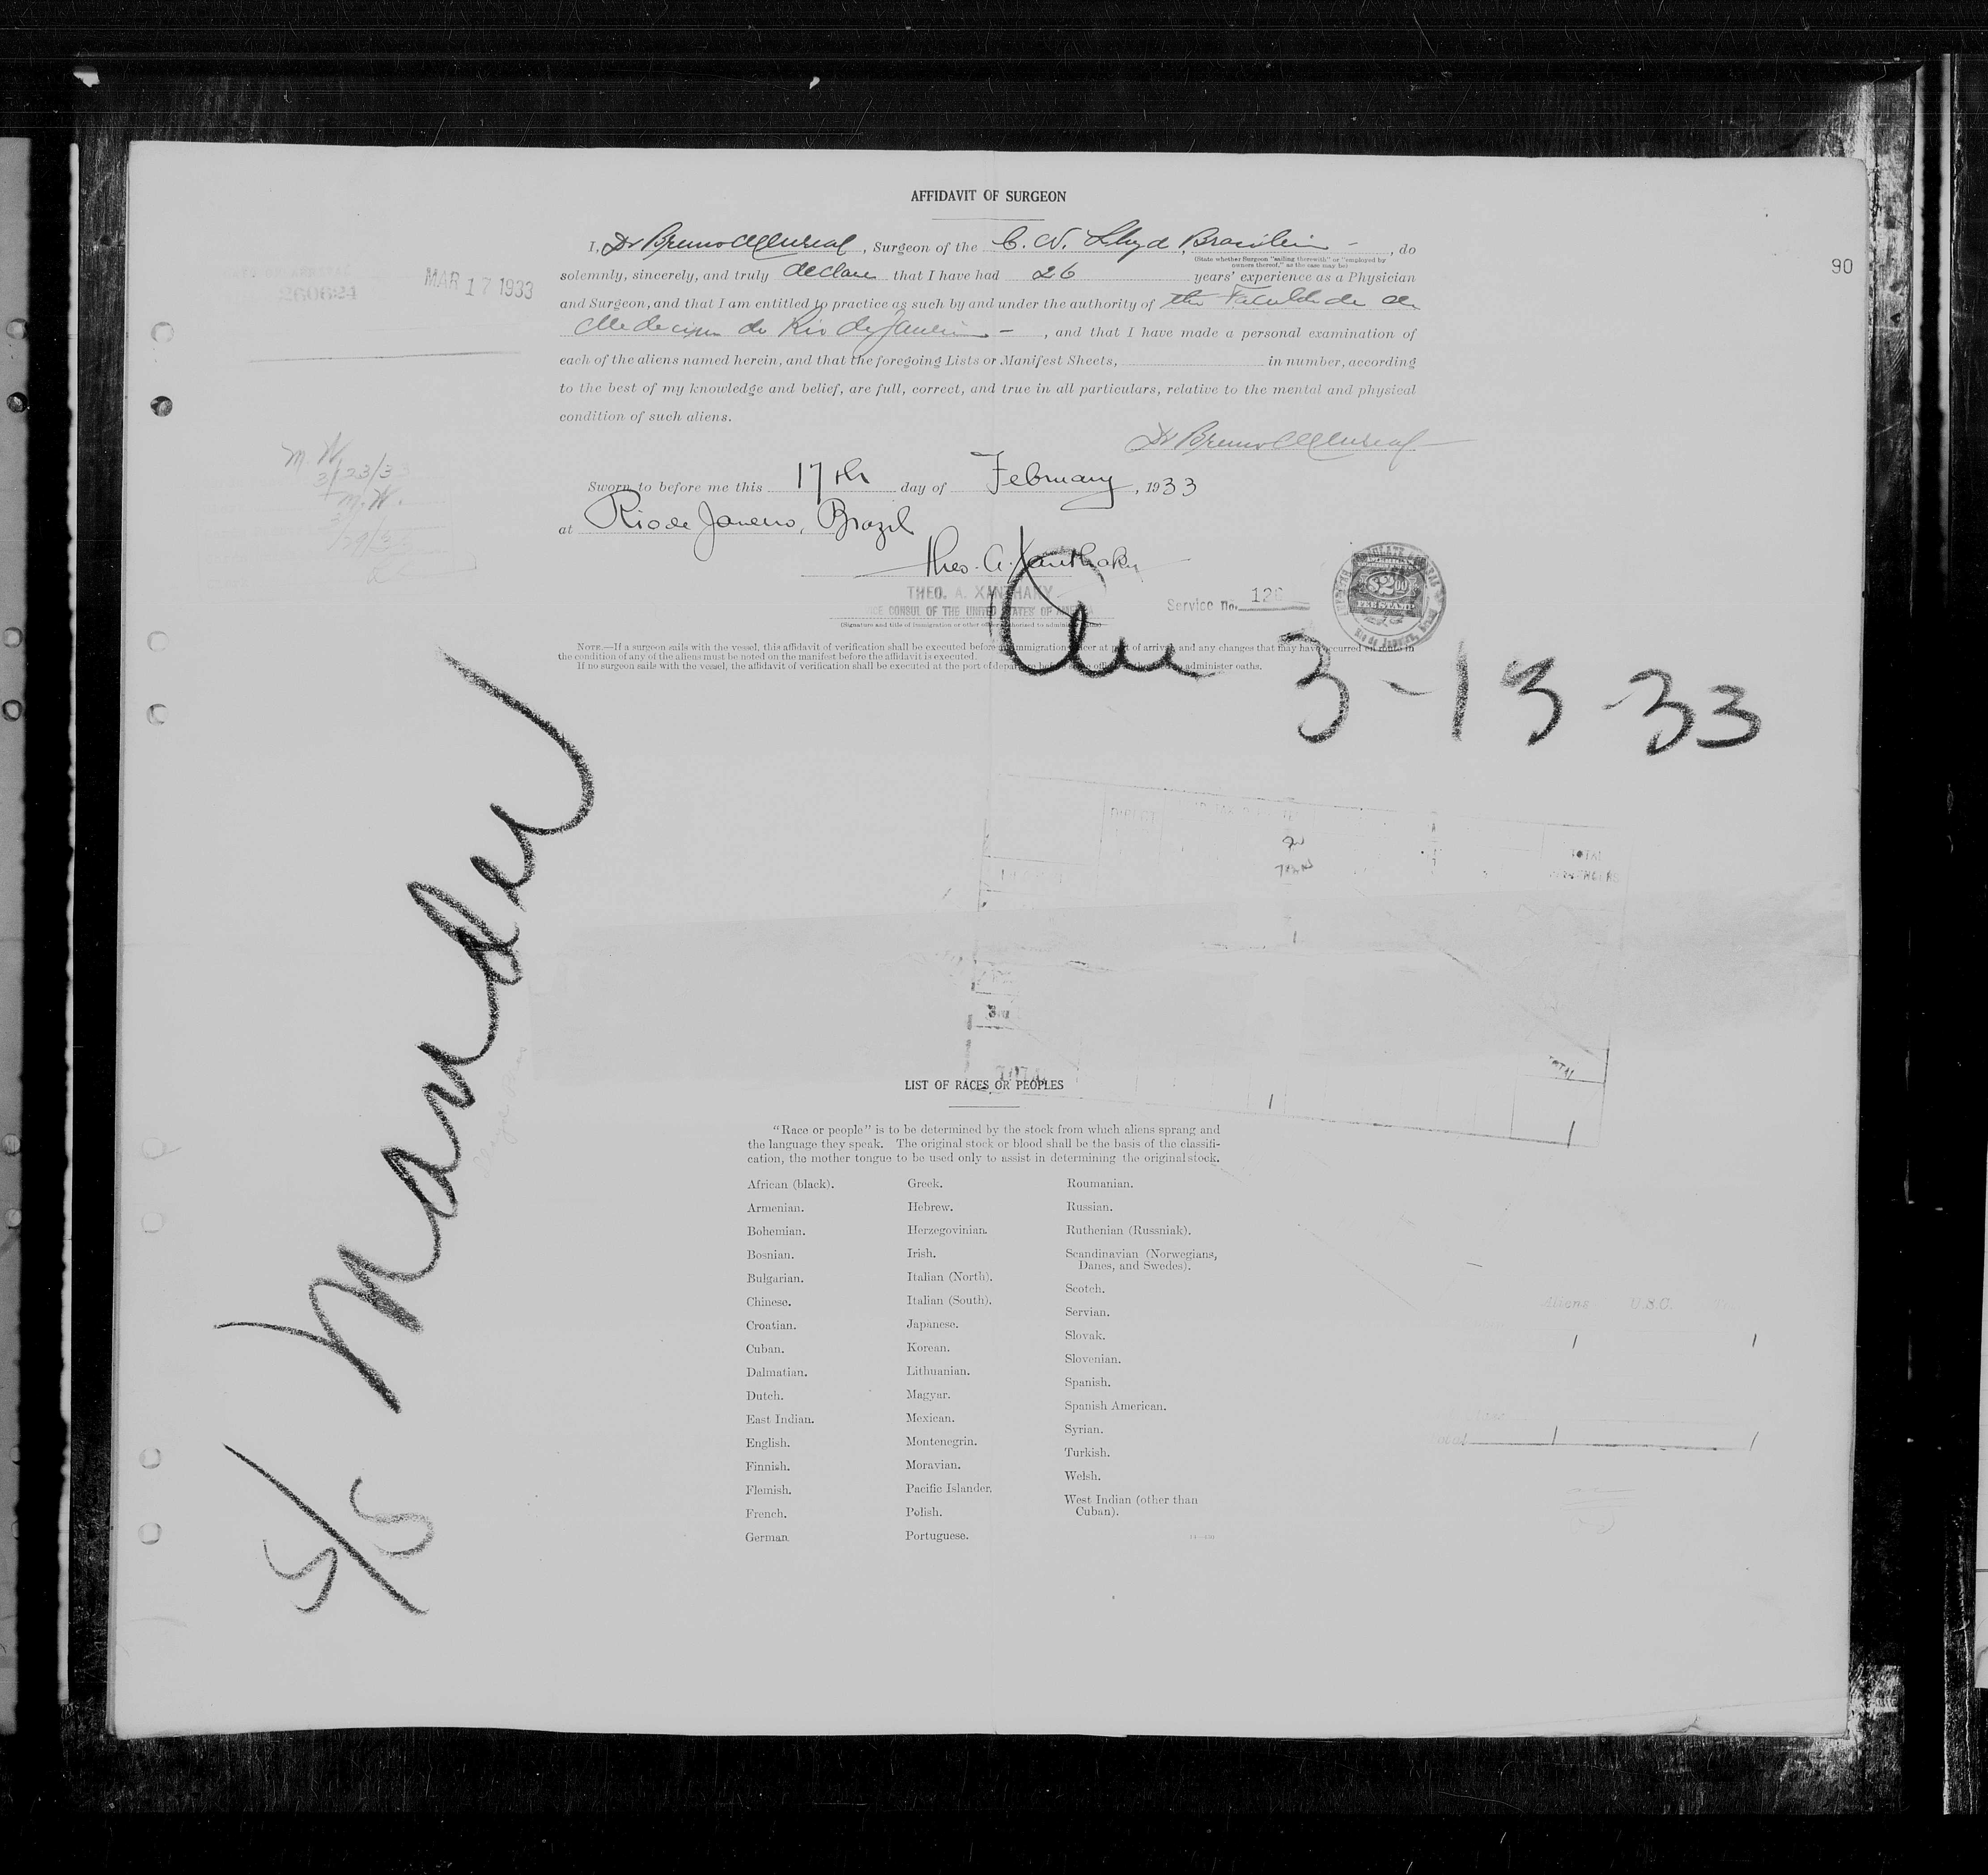 AFFIDAVIT OF SURGEON
I, Dr Bruno, Surgeon of the C. N. Lloyd Brasileiro -, do
(State whether Surgeon "sailing therewith" or "employed by
owners thereof," as the case may be)
solemnly, sincerely, and truly declare that I have had 26 years' experience as a Physician
and Surgeon, and that I am entitled to practice as such by and under the authority of the Faculdade de
Medicina do Rio de Janeiro -, and that I have made a personal examination of
each of the aliens named herein, and that the foregoing Lists or Manifest Sheets, in number, according
to the best of my knowledge and belief, are full, correct, and true in all particulars, relative to the mental and physical
condition of such aliens.
Dr Bruno
Sworn to before me this 17th day of February, 1933
at Rio de Janeiro, Brazil
Theo. A. Xanthaky
THEO. A. XANTHAKY
VICE CONSUL OF THE UNITED STATES OF AMERICA
(Signature and title of immigration or other officer authorized to administer oaths)
Service no. 126
$2.00
FEE STAMP
NOTE.—If a surgeon sails with the vessel, this affidavit of verification shall be executed before an immigration officer at port of arrival, and any changes that may have occurred en route in
the condition of any of the aliens must be noted on the manifest before the affidavit is executed.
If no surgeon sails with the vessel, the affidavit of verification shall be executed at the port of departure before an officer authorized to administer oaths.
90
260624
MAR 17 1933
M. W.
3/23/33
M. W.
Arr 3-13-33
S/S Mandu
DIRECT
TOTAL
PASSENGERS
3rd
TOTAL
TOTAL
1
1
1
LIST OF RACES OR PEOPLES
"Race or people" is to be determined by the stock from which aliens sprang and
the language they speak. The original stock or blood shall be the basis of the classifi-
cation, the mother tongue to be used only to assist in determining the original stock.
African (black).
Armenian.
Bohemian.
Bosnian.
Bulgarian.
Chinese.
Croatian.
Cuban.
Dalmatian.
Dutch.
East Indian.
English.
Finnish.
Flemish.
French.
German.
Greek.
Hebrew.
Herzegovinian.
Irish.
Italian (North).
Italian (South).
Japanese.
Korean.
Lithuanian.
Magyar.
Mexican.
Montenegrin.
Moravian.
Pacific Islander.
Polish.
Portuguese.
Roumanian.
Russian.
Ruthenian (Russniak).
Scandinavian (Norwegians,
Danes, and Swedes).
Scotch.
Servian.
Slovak.
Slovenian.
Spanish.
Spanish American.
Syrian.
Turkish.
Welsh.
West Indian (other than
Cuban).
Aliens U.S.C.
1 1
Total 1 1